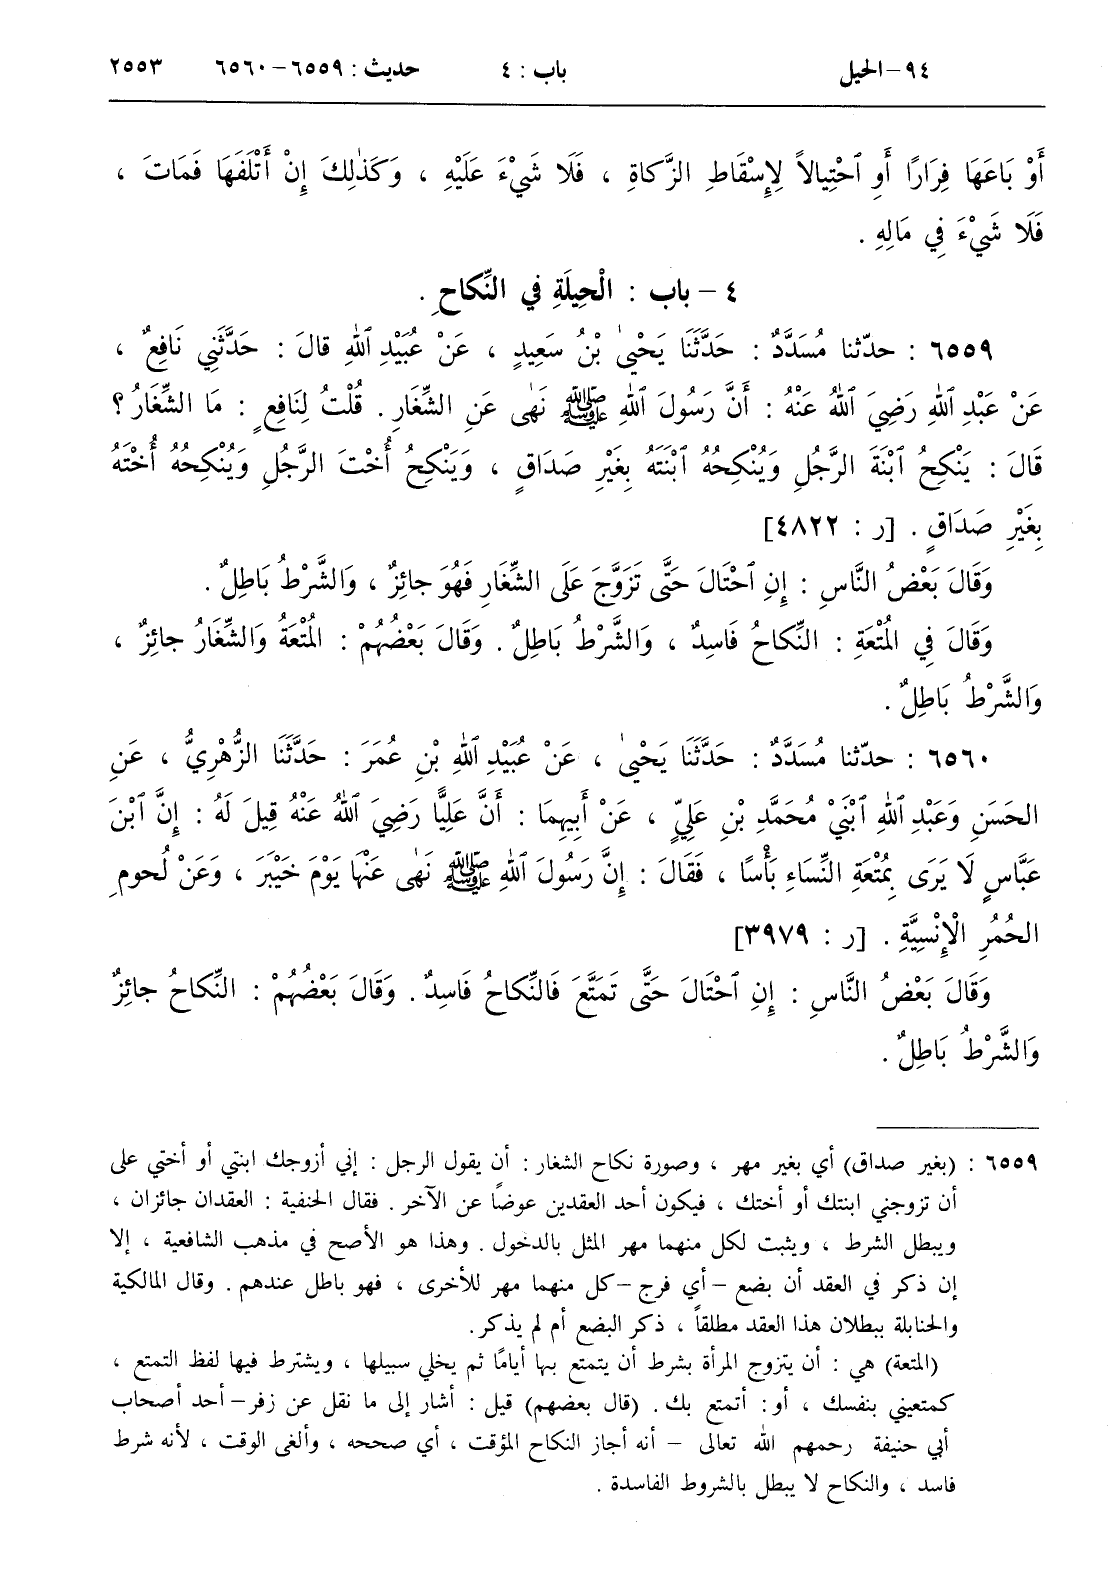 ٩٤ – الحيل باب : ٤ حديث : ٦٥٥٩ – ٦٥٦٠ ٢٥٥٣
أَوْ بَاعَهَا فِرَارًا أَوِ ٱحْتِيالاً لِإِسْقَاطِ الزَّكاةِ ، فَلَا شَيْءَ عَلَيْهِ ، وَكَذٰلِكَ إِنْ أَتْلَفَهَا فَمَاتَ ،
فَلَا شَيْءَ فِي مَالِهِ .
٤ – باب : الْحِيلَةِ فِي النِّكاحِ .
٦٥٥٩ : حدّثنا مُسَدَّدٌ : حَدَّثَنَا يَحْيىٰ بْنُ سَعِيدٍ ، عَنْ عُبَيْدِ ٱللهِ قالَ : حَدَّثَنِي نَافِعٌ ،
عَنْ عَبْدِ ٱللهِ رَضِيَ ٱللهُ عَنْهُ : أَنَّ رَسُولَ ٱللهِ ﷺ نَهٰى عَنِ الشِّغَارِ . قُلْتُ لِنَافِعٍ : مَا الشِّغَارُ ؟
قَالَ : يَنْكِحُ ٱبْنَةَ الرَّجُلِ وَيُنْكِحُهُ ٱبْنَتَهُ بِغَيْرِ صَدَاقٍ ، وَيَنْكِحُ أُخْتَ الرَّجُلِ وَيُنْكِحُهُ أُخْتَهُ
بِغَيْرِ صَدَاقٍ . [ر : ٤٨٢٢]
وَقَالَ بَعْضُ النَّاسِ : إِنِ ٱحْتَالَ حَتَّى تَزَوَّجَ عَلَى الشِّغَارِ فَهُوَ جائِزٌ ، وَالشَّرْطُ بَاطِلٌ .
وَقَالَ فِي الْمُتْعَةِ : النِّكاحُ فَاسِدٌ ، وَالشَّرْطُ بَاطِلٌ . وَقَالَ بَعْضُهُمْ : الْمُتْعَةُ وَالشِّغَارُ جائِزٌ ،
وَالشَّرْطُ بَاطِلٌ .
٦٥٦٠ : حدّثنا مُسَدَّدٌ : حَدَّثَنَا يَحْيىٰ ، عَنْ عُبَيْدِ ٱللهِ بْنِ عُمَرَ : حَدَّثَنَا الزُّهْرِيُّ ، عَنِ
الحَسَنِ وَعَبْدِ ٱللهِ ٱبْنَيْ مُحَمَّدِ بْنِ عَلِيٍّ ، عَنْ أَبِيهِمَا : أَنَّ عَلِيًّا رَضِيَ ٱللهُ عَنْهُ قِيلَ لَهُ : إِنَّ ٱبْنَ
عَبَّاسٍ لَا يَرَى بِمُتْعَةِ النِّسَاءِ بَأْسًا ، فَقَالَ : إِنَّ رَسُولَ ٱللهِ ﷺ نَهٰى عَنْهَا يَوْمَ خَيْبَرَ ، وَعَنْ لُحومِ
الحُمُرِ الْإِنْسِيَّةِ . [ر : ٣٩٧٩]
وَقَالَ بَعْضُ النَّاسِ : إِنِ ٱحْتَالَ حَتَّى تَمَتَّعَ فَالنِّكاحُ فَاسِدٌ . وَقَالَ بَعْضُهُمْ : النِّكاحُ جائِزٌ
وَالشَّرْطُ بَاطِلٌ .
٦٥٥٩ : (بغير صداق) أي بغير مهر ، وصورة نكاح الشغار : أن يقول الرجل : إني أزوجك ابنتي أو أختي على
أن تزوجني ابنتك أو أختك ، فيكون أحد العقدين عوضًا عن الآخر . فقال الحنفية : العقدان جائزان ،
ويبطل الشرط ، ويثبت لكل منهما مهر المثل بالدخول . وهذا هو الأصح في مذهب الشافعية ، إلا
إن ذكر في العقد أن بضع – أي فرج – كل منهما مهر للأخرى ، فهو باطل عندهم . وقال المالكية
والحنابلة ببطلان هذا العقد مطلقاً ، ذكر البضع أم لم يذكر .
(المتعة) هي : أن يتزوج المرأة بشرط أن يتمتع بها أيامًا ثم يخلي سبيلها ، ويشترط فيها لفظ التمتع ،
كمتعيني بنفسك ، أو : أتمتع بك . (قال بعضهم) قيل : أشار إلى ما نقل عن زفر – أحد أصحاب
أبي حنيفة رحمهم الله تعالى – أنه أجاز النكاح المؤقت ، أي صححه ، وألغى الوقت ، لأنه شرط
فاسد ، والنكاح لا يبطل بالشروط الفاسدة .